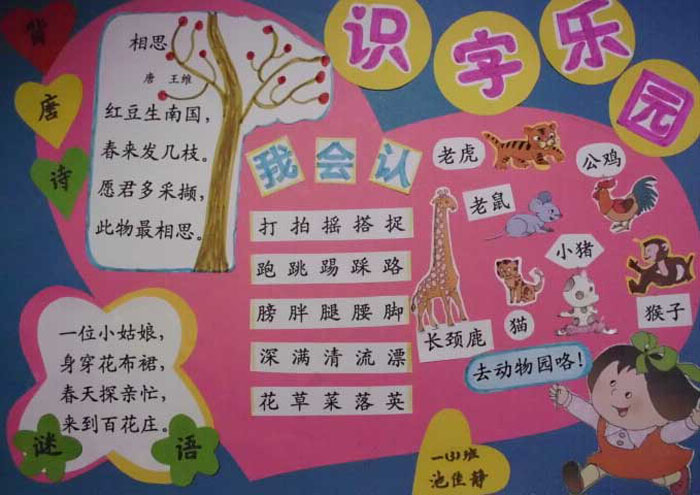 识字乐园
背唐诗
相思
唐 王维
红豆生南国，
春来发几枝。
愿君多采撷，
此物最相思。
我会认
打拍摇搭捉
跑跳踢踩路
膀胖腿腰脚
深满清流漂
花草菜落英
老虎
公鸡
老鼠
小猪
长颈鹿
猫
猴子
去动物园咯！
一位小姑娘，
身穿花布裙，
春天探亲忙，
来到百花庄。
谜语
一(3)班
池佳静